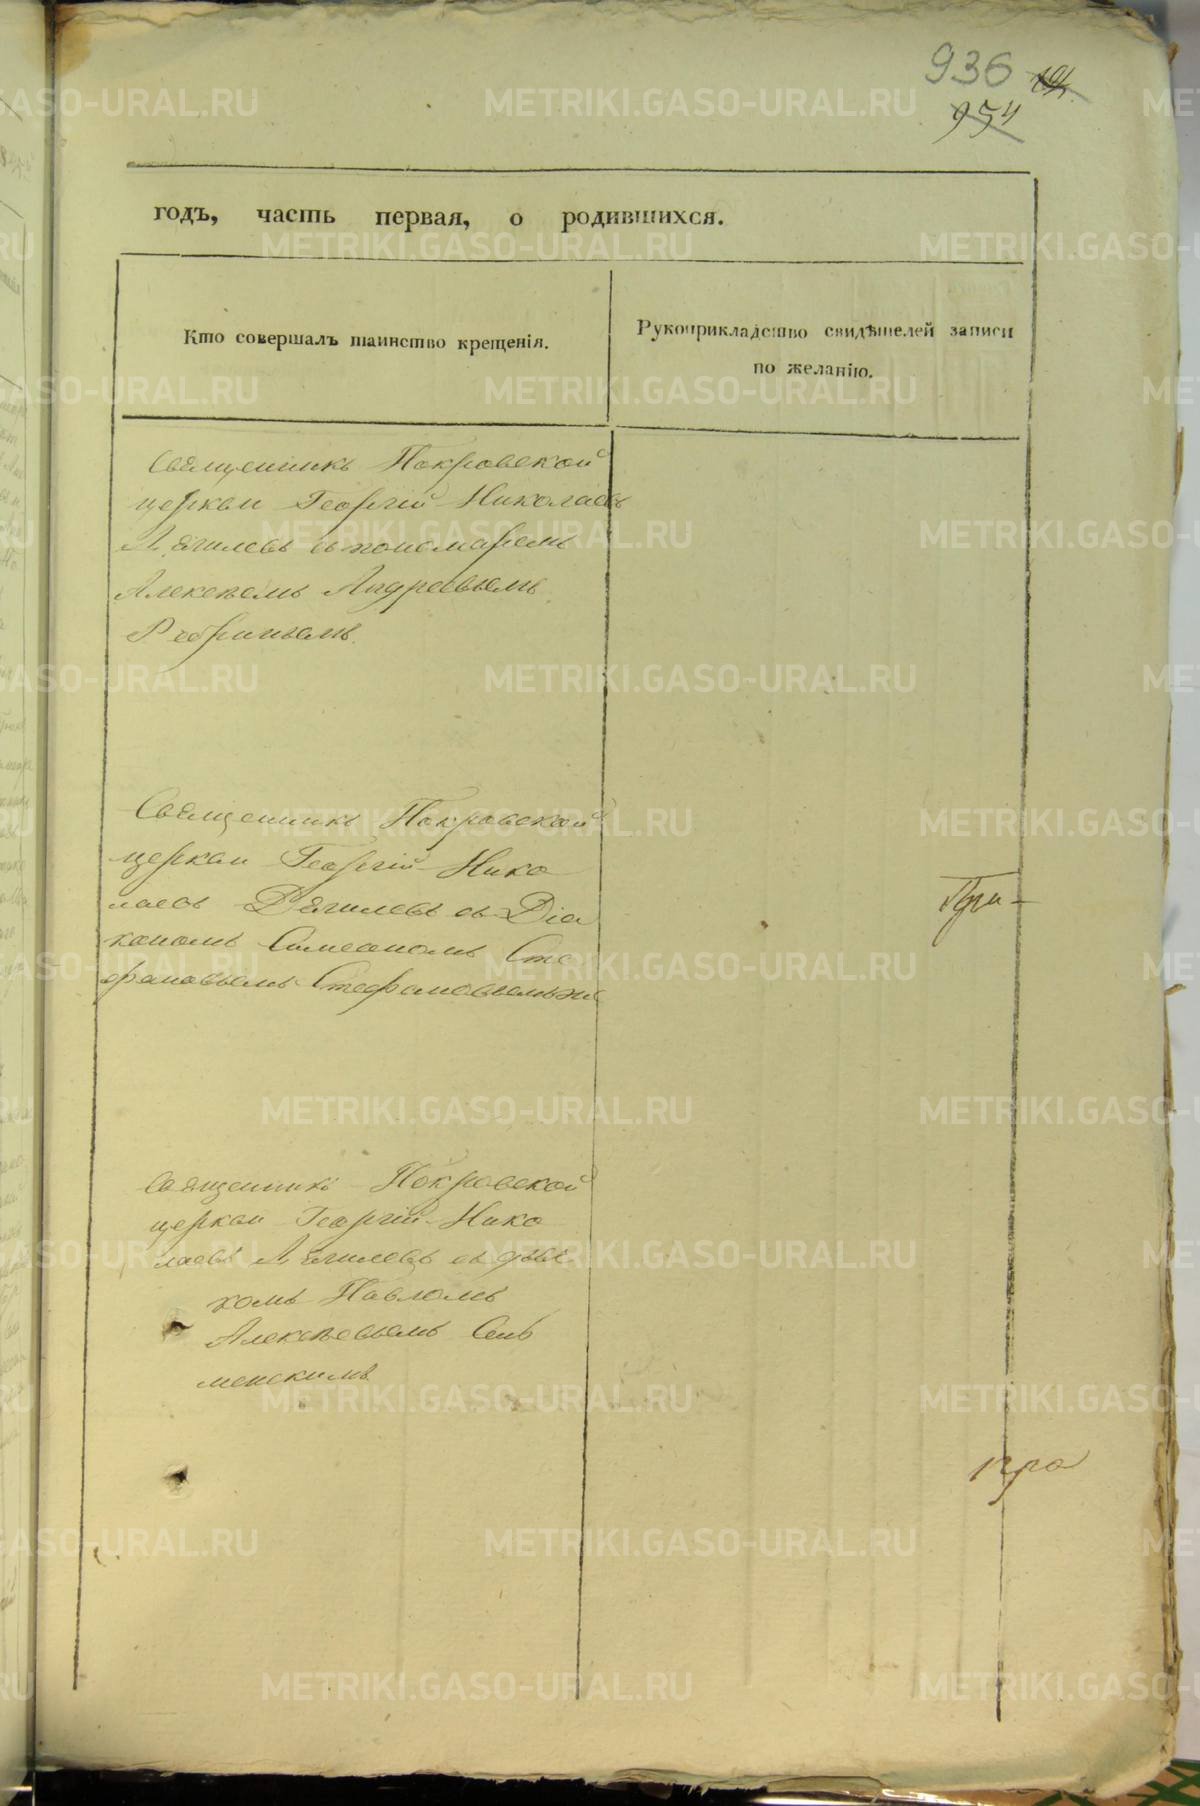 936
954
годъ, часть первая, о родившихся.
Кто совершалъ таинство крещенія.
Рукоприкладство свидѣтелей записи
по желанію.
Священникъ Покровской
церкви Георгій Николаевъ
Дягилевъ съ пономаремъ
Алексѣемъ Андреевымъ
Ребринымъ.
Священникъ Покровской
церкви Георгій Нико
лаевъ Дягилевъ съ Діа
кономъ Симеономъ Сте
фановымъ
Священникъ Покровской
церкви Георгій Нико
лаевъ Дягилевъ съ дьяч
комъ Павломъ
Алексѣевымъ
METRIKI.GASO-URAL.RU